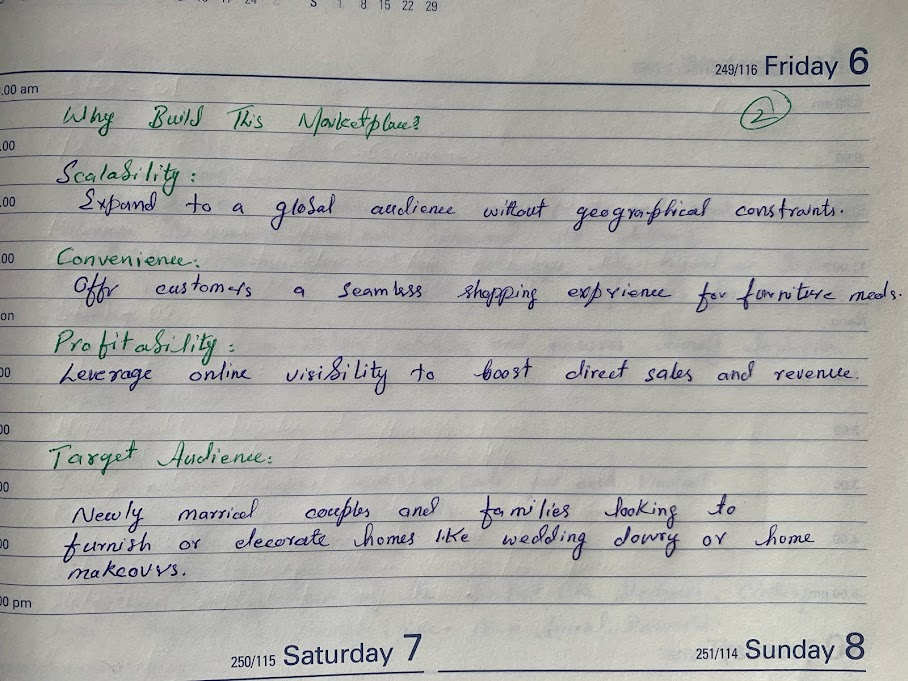 S 1 8 15 22 29
249/116 Friday 6
.00 am
Why Build This Marketplace? 2
.00
Scalability:
.00 Expand to a global audience without geographical constraints.
00 Convenience:
Offr customers a seamless shopping exprience for furniture needs.
on
Profitability:
00 Leverage online visibility to boost direct sales and revenue.
00
Target Audience:
00
Newly married couples and families looking to
00 furnish or decorate homes like wedding dowry or home
makeovrs.
00 pm
250/115 Saturday 7
251/114 Sunday 8